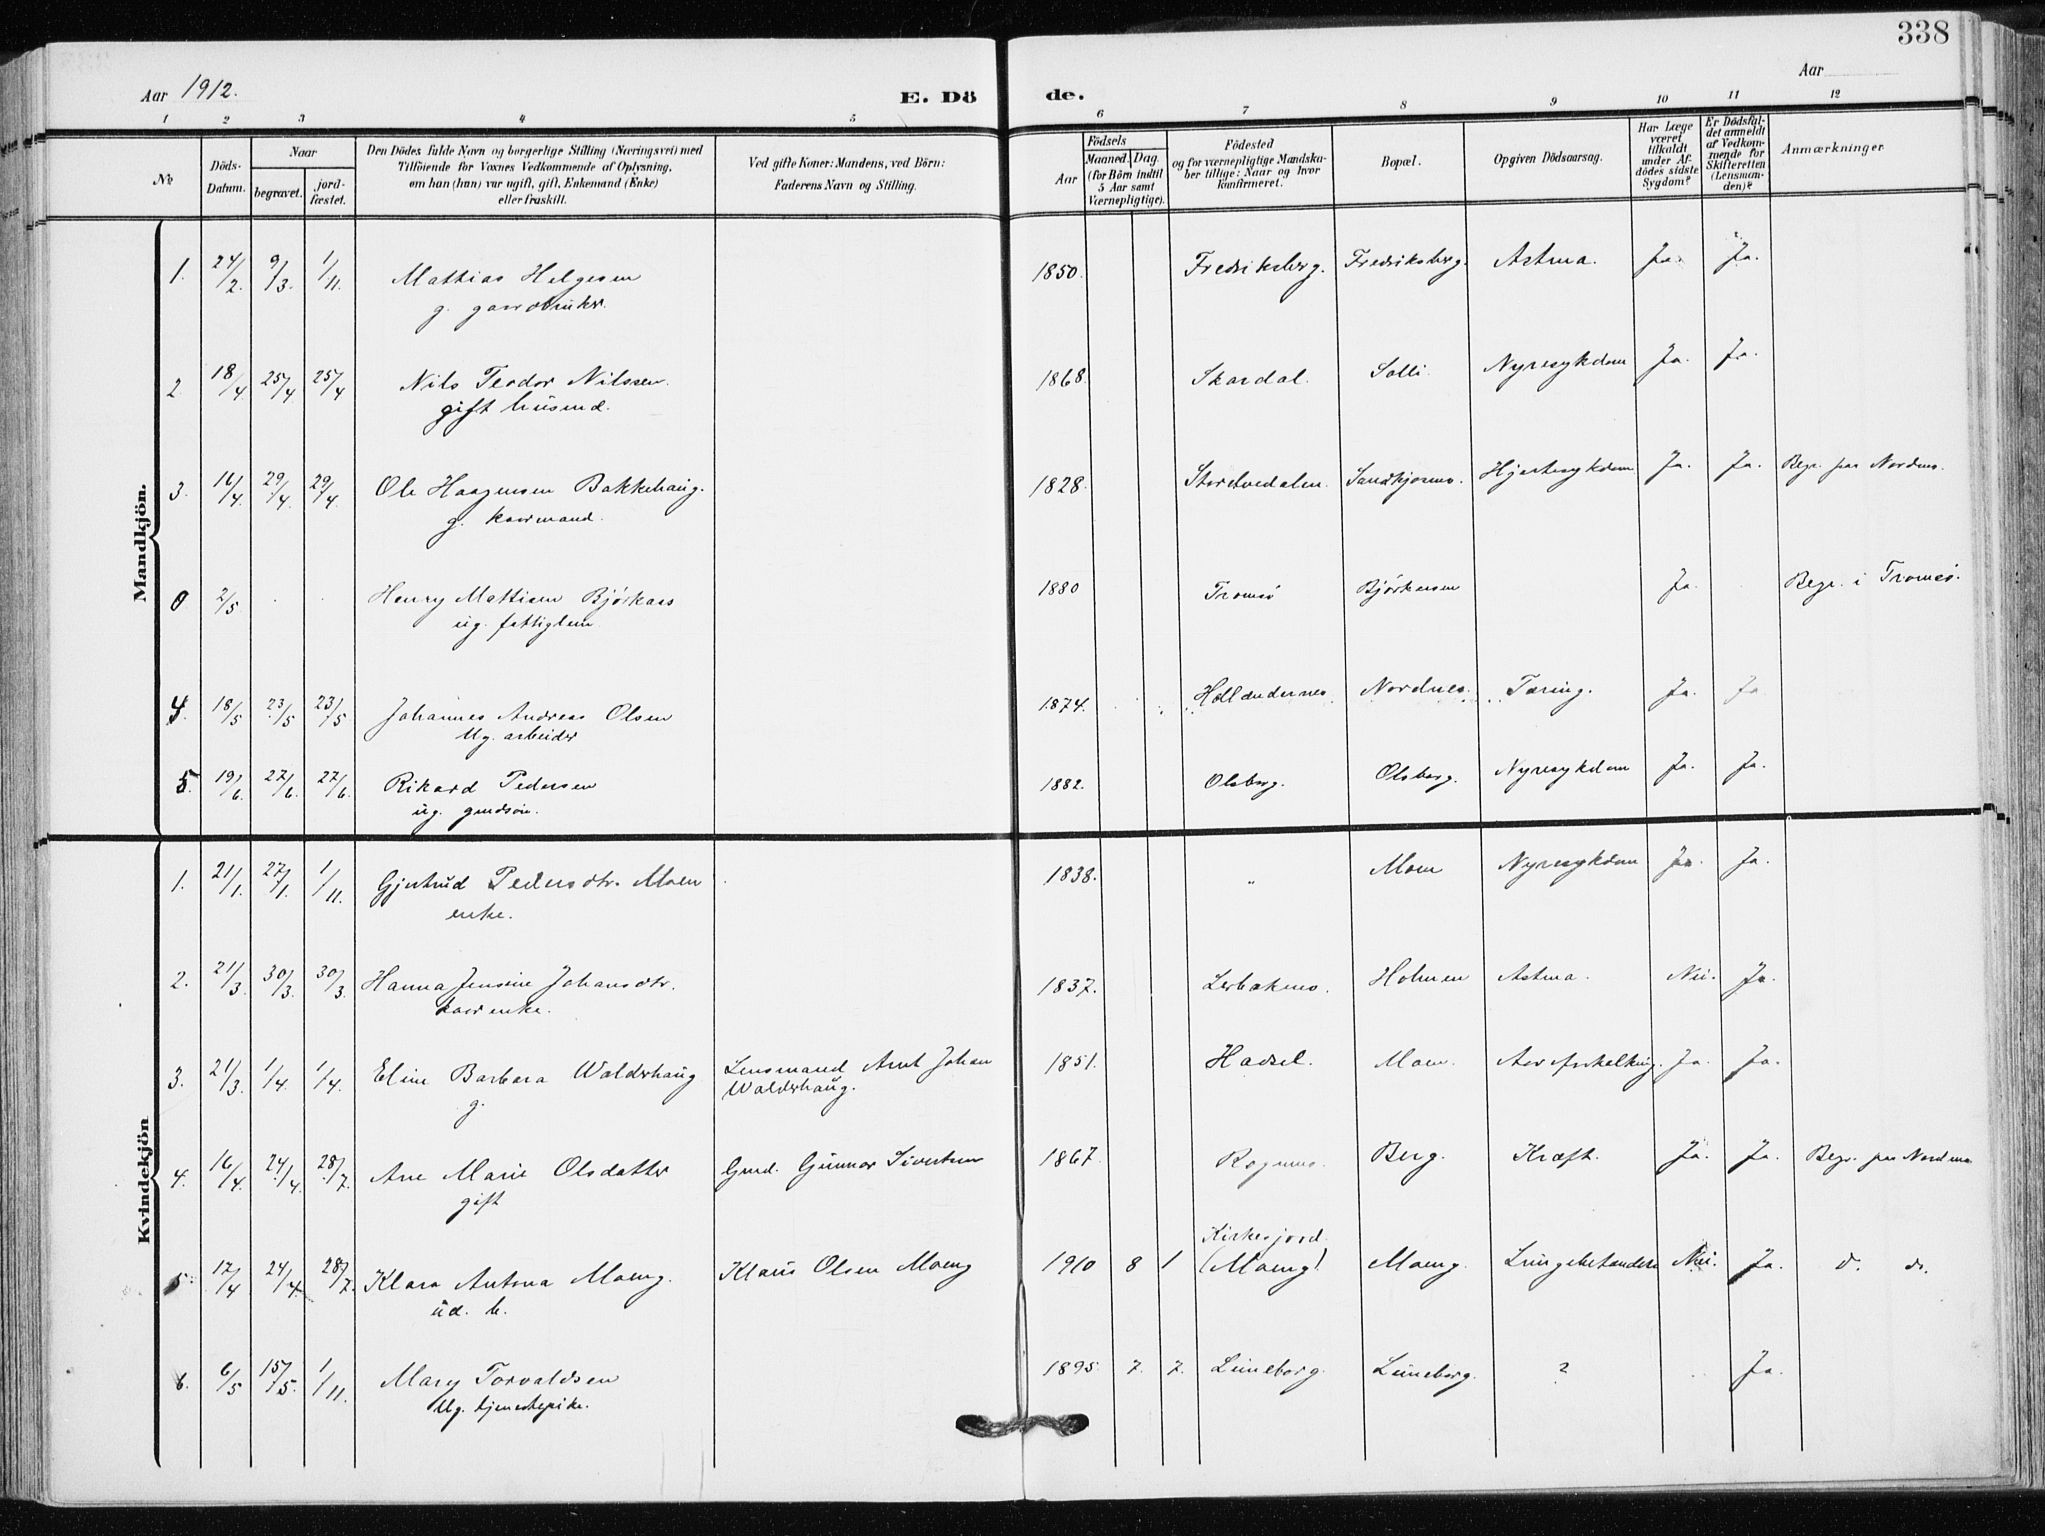 338
Aar 1912. E. Dö de. Aar
1 2 3 4 5 6 7 8 9 10 11 12
№
Döds-Datum.
Naar
begravet.
jord-fæstet.
Den Dödes fulde Navn og borgerlige Stilling (Næringsvei) med
Tilföiende for Voxnes Vedkommende af Oplysning,
om han (hun) var ugift, gift, Enkemand (Enke)
eller fraskilt.
Ved gifte Koner: Mandens, ved Börn:
Faderens Navn og Stilling.
Födsels
Aar
Maaned. Dag.
(for Börn indtil
5 Aar samt
Værnepligtige).
Födested
og for værnepligtige Mandska-
ber tillige: Naar og hvor
konfirmeret.
Bopæl.
Opgiven Dödsaarsag.
Har Læge
været
tilkaldt
under Af-
dödes sidste
Sygdom?
Er Dödsfal-
det anmeldt
af Vedkom-
mende for
Skifteretten
(Lensman-
den)?
Anmærkninger
Mandkjön.
1. 24/2 9/3. 1/11. Mattias Helgesen 1850. Fredriksberg. Fredriksberg. Astma. Ja. Ja.
g. gaardbruker.
2. 18/4 25/4 25/4 Nils Teodor Nilssen. 1868. Skardal. Solli. Nyresykdom Ja. Ja.
gift husmd.
3. 16/4. 29/4 29/4 Ole Haagensen Bakkehaug. 1828. Hjertesykdom Ja. Ja. Begr. paa Nordnes.
g. kaarmand.
0 2/5 Henry Mattisen Bjørkaas 1880 Tromsø Ja. Begr. i Tromsø.
ug. fattiglem
4. 18/5 23/5 23/5 Johannes Andreas Olsen 1874. Hollændernes Nordnes. Tæring. Ja. Ja.
Ug. arbeider
5. 19/6. 27/6. 27/6. Rikard Pedersen 1882. Olsborg. Olsborg. Nyresykdom Ja. Ja.
ug. grudsøn.
Kvindekjön
1. 21/1. 27/1. 1/11. Gjertrud Pedersdtr. Moen 1838. " Moen Nyresykdom Ja. Ja.
enke.
2. 21/3. 30/3. 30/3. Hanna Jensine Johansdtr. 1837. Holmen Astma. Nei. Ja.
kaarenke.
3. 21/3. 1/4. 1/4. Eline Barbara Walderhaug Lensmand Arnt Johan 1851. Hadsel. Moen. Aareforkalkning. Ja. Ja.
g. Walderhaug.
4. 16/4 24/4 28/7. Ane Marie Olsdatter Grd. Gunnar Sivertsen 1867. Rognmo. Berg. Kræft. Ja. Ja. Begr. paa Nordmo
gift
5. 17/4 24/4. 28/7. Klara Antona Moeng. Klaus Olsen Moeng 1910 8 1 Kirkesjord
(Moeng) Moeng. Lungebetændelse Nei. Ja. d. d.
6. 6/5 15/5. 1/11. Mary Torvaldsen 1895. 7. 7. Luneborg. Luneborg. ? Ja.
Ug. tjenestepike.